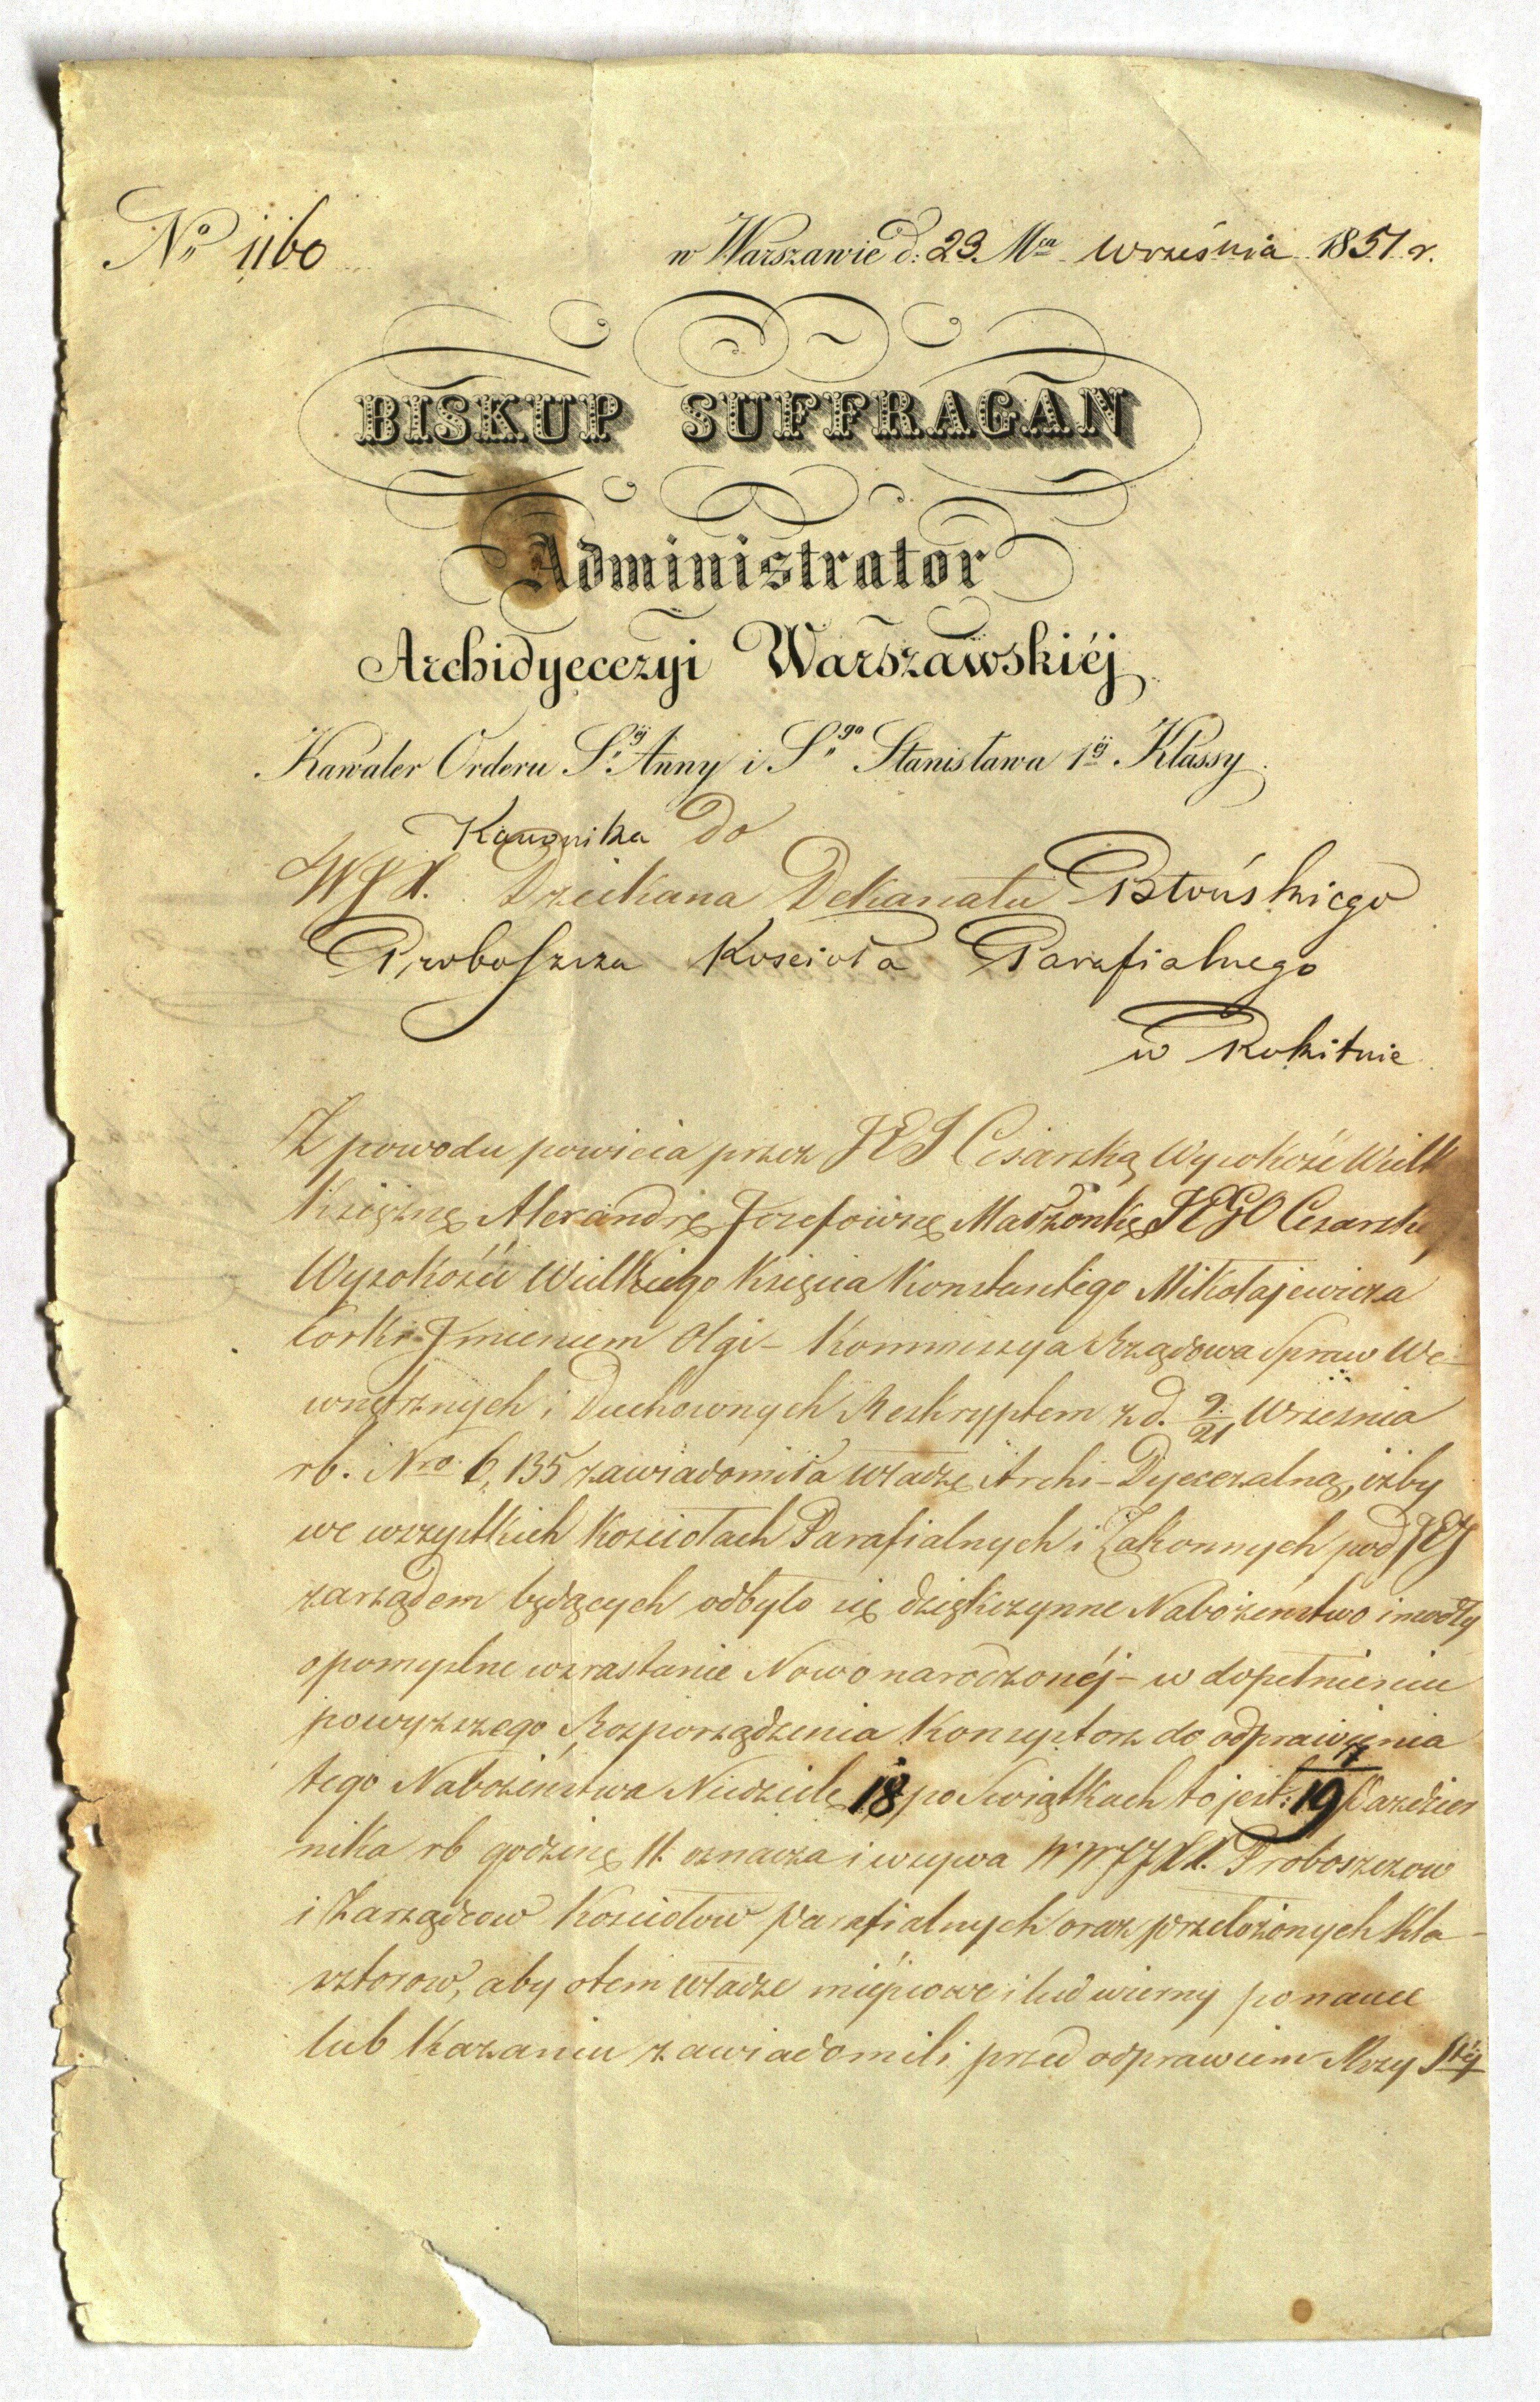 No 1160
w Warszawie d: 23 Mca Września 1851 r.
BISKUP SUFFRAGAN
Administrator
Archidyecezyi Warszawskiéj
Kawaler Orderu S.éj Anny i S.go Stanisława 1éj Klassy.
Kanonika Do
WJX. Dziekana Dekanatu Błońskiego
Proboszcza Kościoła Parafialnego
w Rokitnie
Z powodu powicia przez JEJ Cesarską Wysokość Wielk
Księżnę Alexandrę Jozefownę Małżonkę JEGO Cesarskiej
Wysokości Wielkiego Księcia Konstantego Mikołajewicza
Corki Imieniem Olgi – Kommissya Rządowa Spraw We-
wnętrznych i Duchownych Reskryptem z d. 9/21 Września
rb. Nro 6,135 zawiadomiła Władzę Archi-Dyecezalną, iżby
we wszystkich Kościołach Parafialnych i Zakonnych pod JEJ
zarządem będących odbyło się dziękczynne Nabożeństwo i modły
o pomyślne wzrastanie Nowonarodzonéj – w dopełnieniu
powyższego Rozporządzenia Konsystorz do odprawienia
tego Nabożeństwa Niedzielę 18 po Swiątkach to jest: 7/19 Pazdzier
nika rb godzinę 11 oznacza i wzywa WWJJXX. Proboszczow
i Zarządcow Kościołow Parafialnych oraz przełożonych Kla-
sztorow, aby o tem Władze miejscowe i lud wierny po nauce
lub Kazaniu zawiadomili przed odprawiem Mszy Stéj